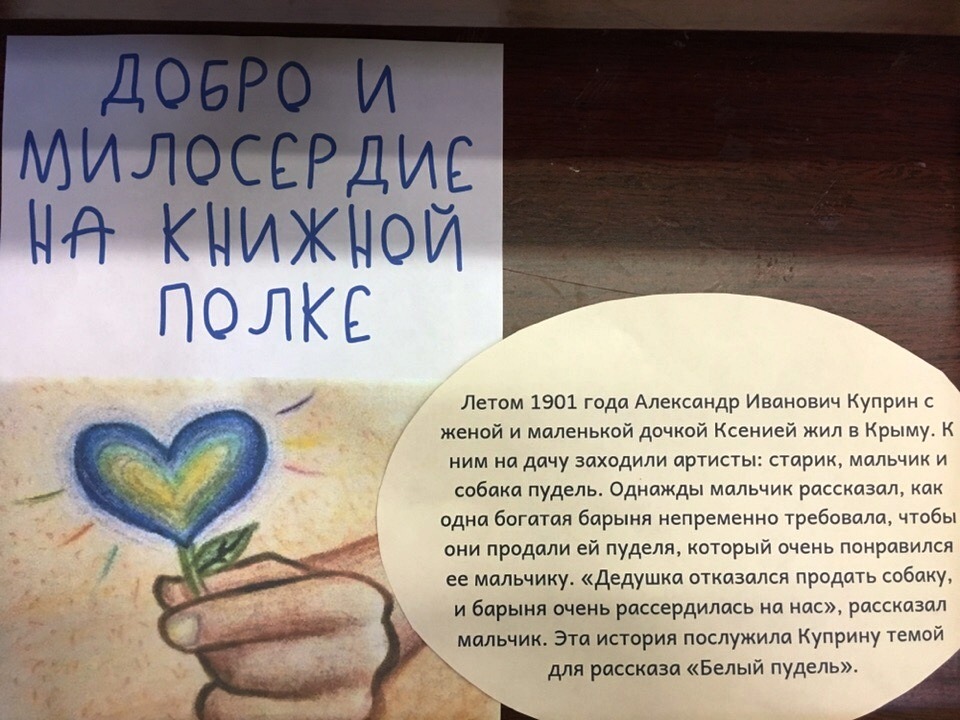 ДОБРО И
МИЛОСЕРДИЕ
НА КНИЖНОЙ
ПОЛКЕ
Летом 1901 года Александр Иванович Куприн с
женой и маленькой дочкой Ксенией жил в Крыму. К
ним на дачу заходили артисты: старик, мальчик и
собака пудель. Однажды мальчик рассказал, как
одна богатая барыня непременно требовала, чтобы
они продали ей пуделя, который очень понравился
ее мальчику. «Дедушка отказался продать собаку,
и барыня очень рассердилась на нас», рассказал
мальчик. Эта история послужила Куприну темой
для рассказа «Белый пудель».